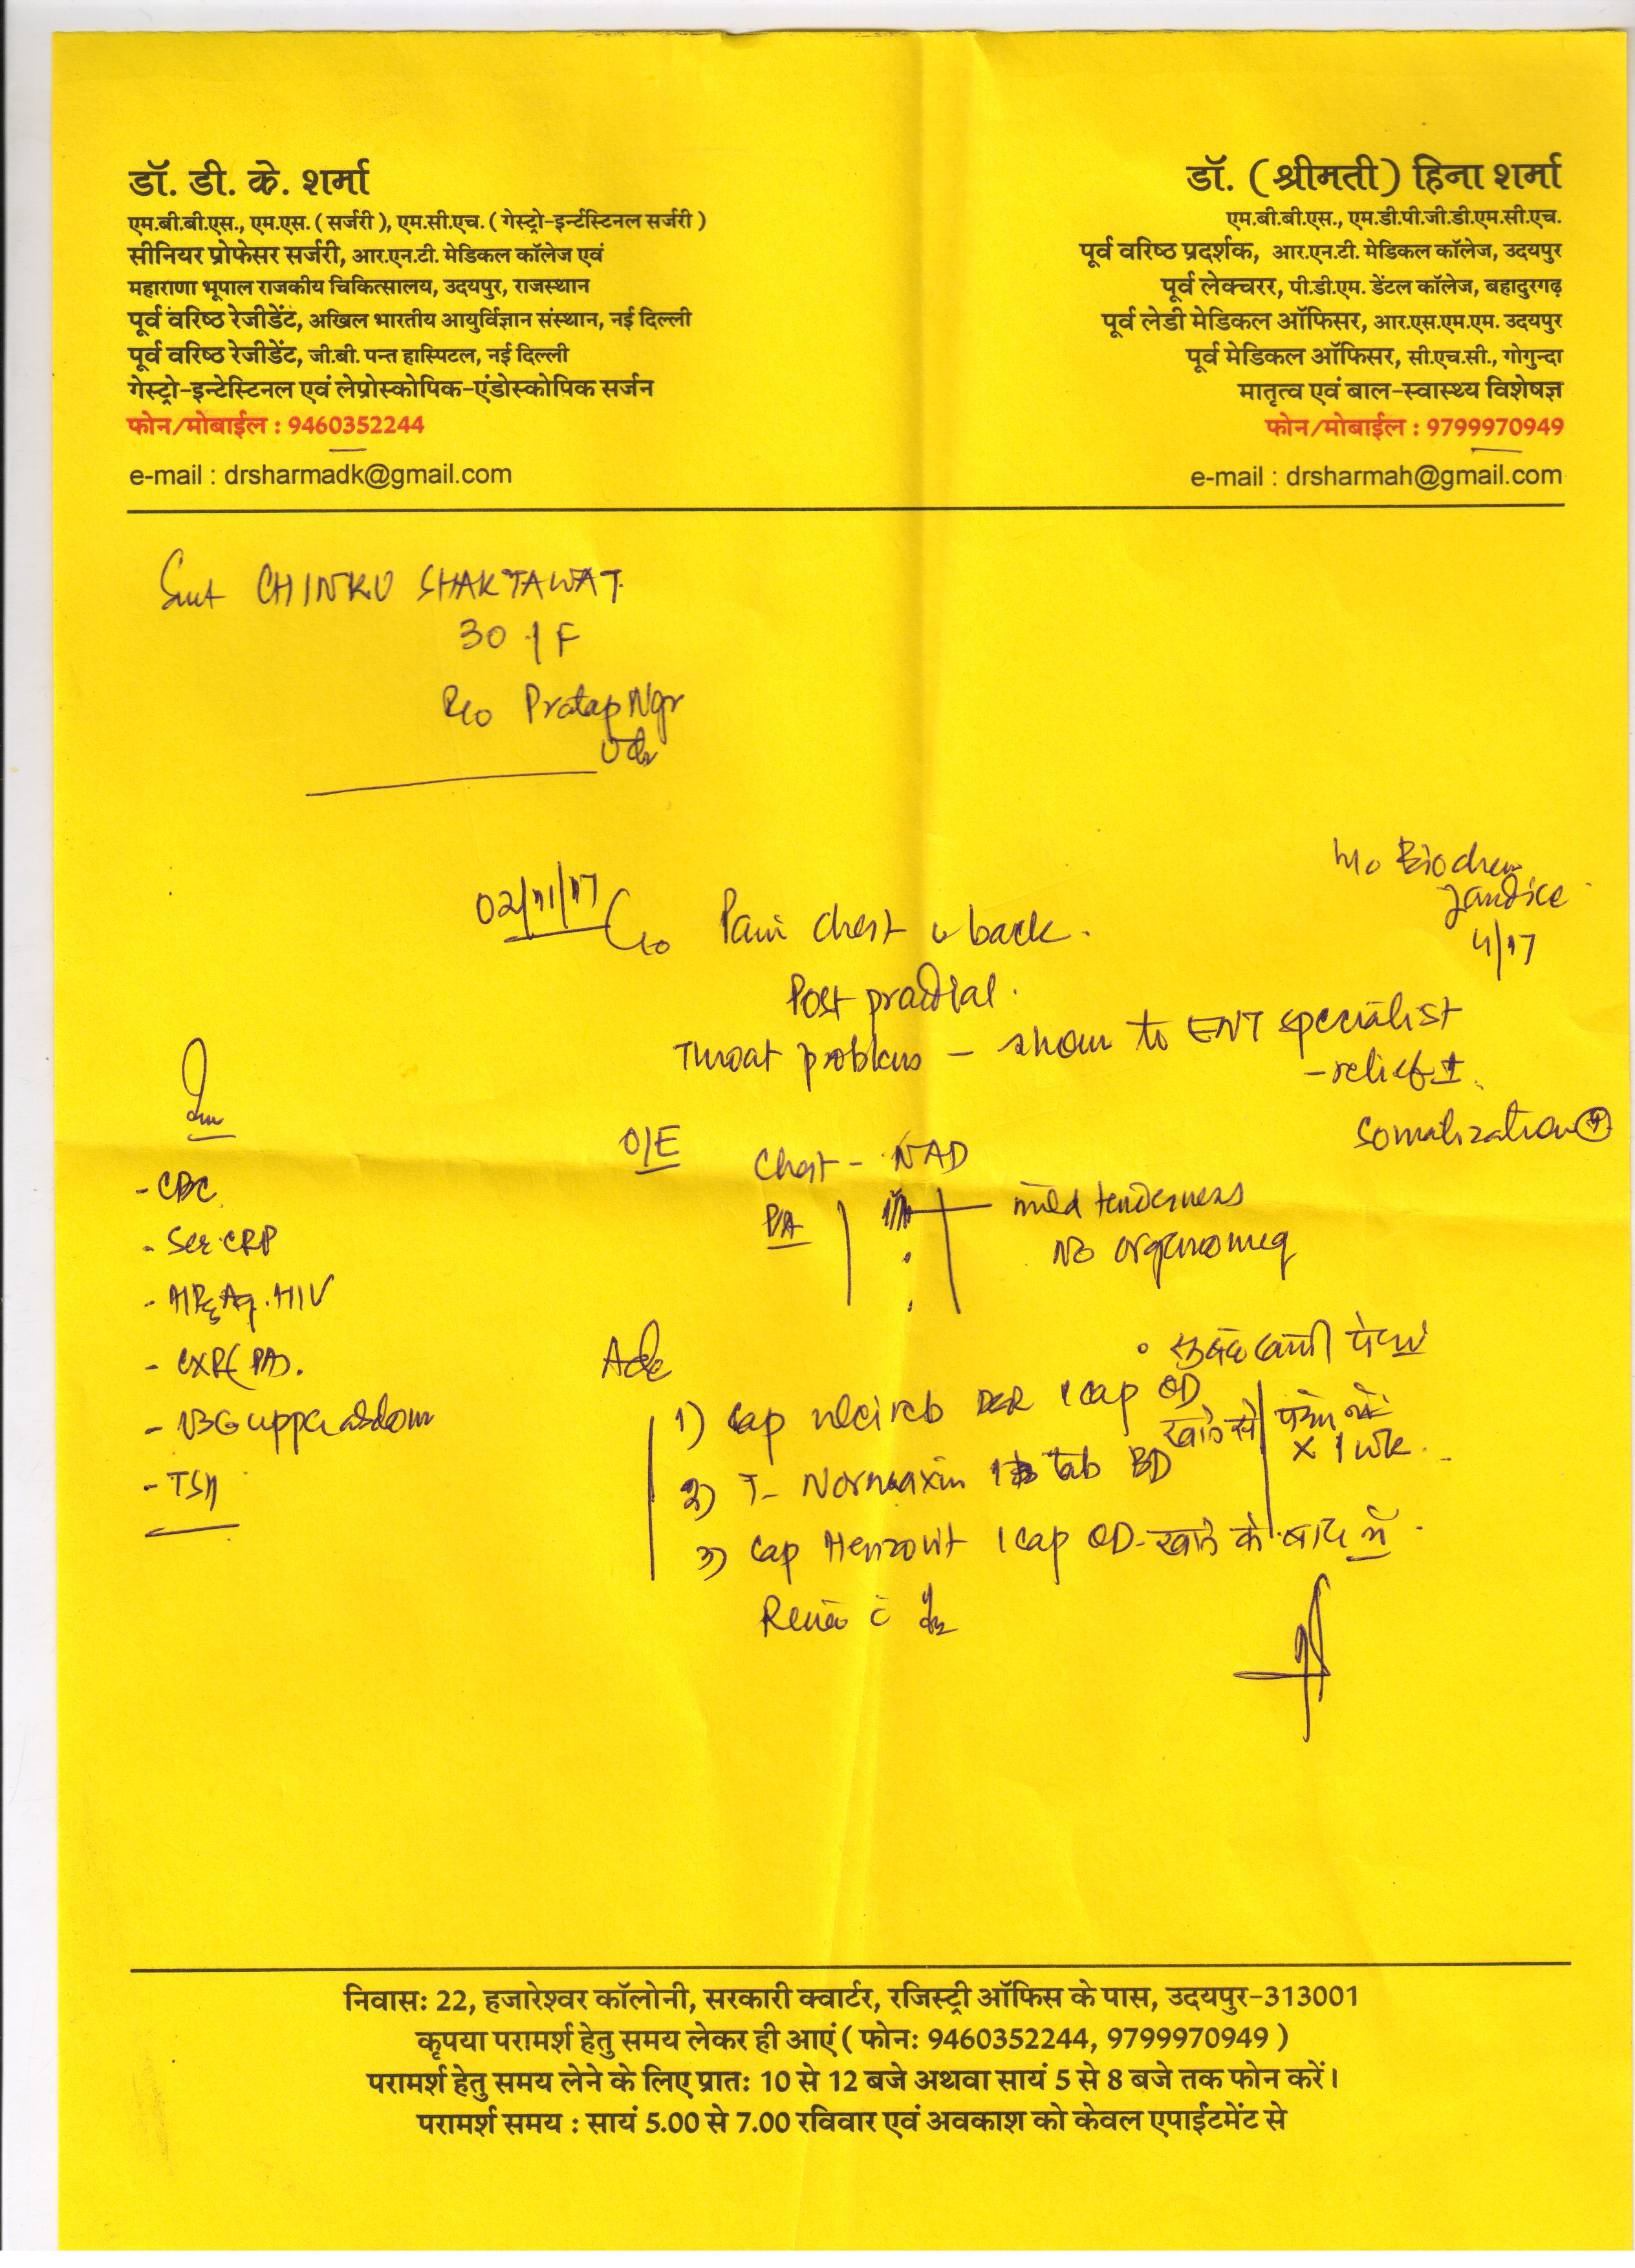 डॉ. डी. के. शर्मा
एम.बी.बी.एस., एम.एस. ( सर्जरी ), एम.सी.एच. ( गेस्ट्रो-इन्टेंस्टिनल सर्जरी )
सीनियर प्रोफेसर सर्जरी, आर.एन.टी. मेडिकल कॉलेज एवं
महाराणा भूपाल राजकीय चिकित्सालय, उदयपुर, राजस्थान
पूर्व वरिष्ठ रेजीडेंट, अखिल भारतीय आयुर्विज्ञान संस्थान, नई दिल्ली
पूर्व वरिष्ठ रेजीडेंट, जी.बी. पन्त हास्पिटल, नई दिल्ली
गेस्ट्रो-इन्टेस्टिनल एवं लेप्रोस्कोपिक-एंडोस्कोपिक सर्जन
फोन/मोबाईल : 9460352244
e-mail : drsharmadk@gmail.com
डॉ. ( श्रीमती ) हिना शर्मा
एम.बी.बी.एस., एम.डी.पी.जी.डी.एम.सी.एच.
पूर्व वरिष्ठ प्रदर्शक, आर.एन.टी. मेडिकल कॉलेज, उदयपुर
पूर्व लेक्चरर, पी.डी.एम. डेंटल कॉलेज, बहादुरगढ़
पूर्व लेडी मेडिकल ऑफिसर, आर.एस.एम.एम. उदयपुर
पूर्व मेडिकल ऑफिसर, सी.एच.सी., गोगुन्दा
मातृत्व एवं बाल-स्वास्थ्य विशेषज्ञ
फोन/मोबाईल : 9799970949
e-mail : drsharmah@gmail.com
Smt CHINKU SHAKTAWAT
30 / F
R/o Pratap Ngr
Udr
H/o Biochem
Jandice
4/17
02/11/17 C/o Pain chest & back.
Post pradial.
Throat problems - shown to ENT specialist
- relief ±
Somatization +
O/E Chest - NAD
P/A mild tenderness
No organomeg
- CBC
- Ser CRP
- HBsAg. HIV
- CXR (PA).
- USG upper abdom
- TSH
Adv
1) Cap DSR 1 cap OD
2) T- Normaxin 1 tab BD
x 1 wk
3) Cap 1 cap OD - खाने के बाद में
Review c̄
निवासः 22, हजारेश्वर कॉलोनी, सरकारी क्वार्टर, रजिस्ट्री ऑफिस के पास, उदयपुर-313001
कृपया परामर्श हेतु समय लेकर ही आएं ( फोनः 9460352244, 9799970949 )
परामर्श हेतु समय लेने के लिए प्रातः 10 से 12 बजे अथवा सायं 5 से 8 बजे तक फोन करें।
परामर्श समय : सायं 5.00 से 7.00 रविवार एवं अवकाश को केवल एपाईटमेंट से